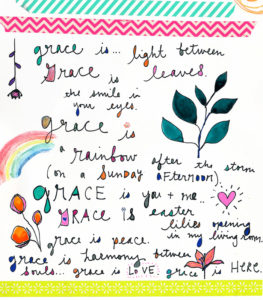 grace is... light between
grace is leaves.
the smile in
your eyes.
grace is
a rainbow after the storm
(on a Sunday afternoon)
GRACE is you + me..
GRACE is easter
lilies opening
in my living room.
grace is peace.
grace is harmony between
souls... grace is LOVE. grace is HERE.